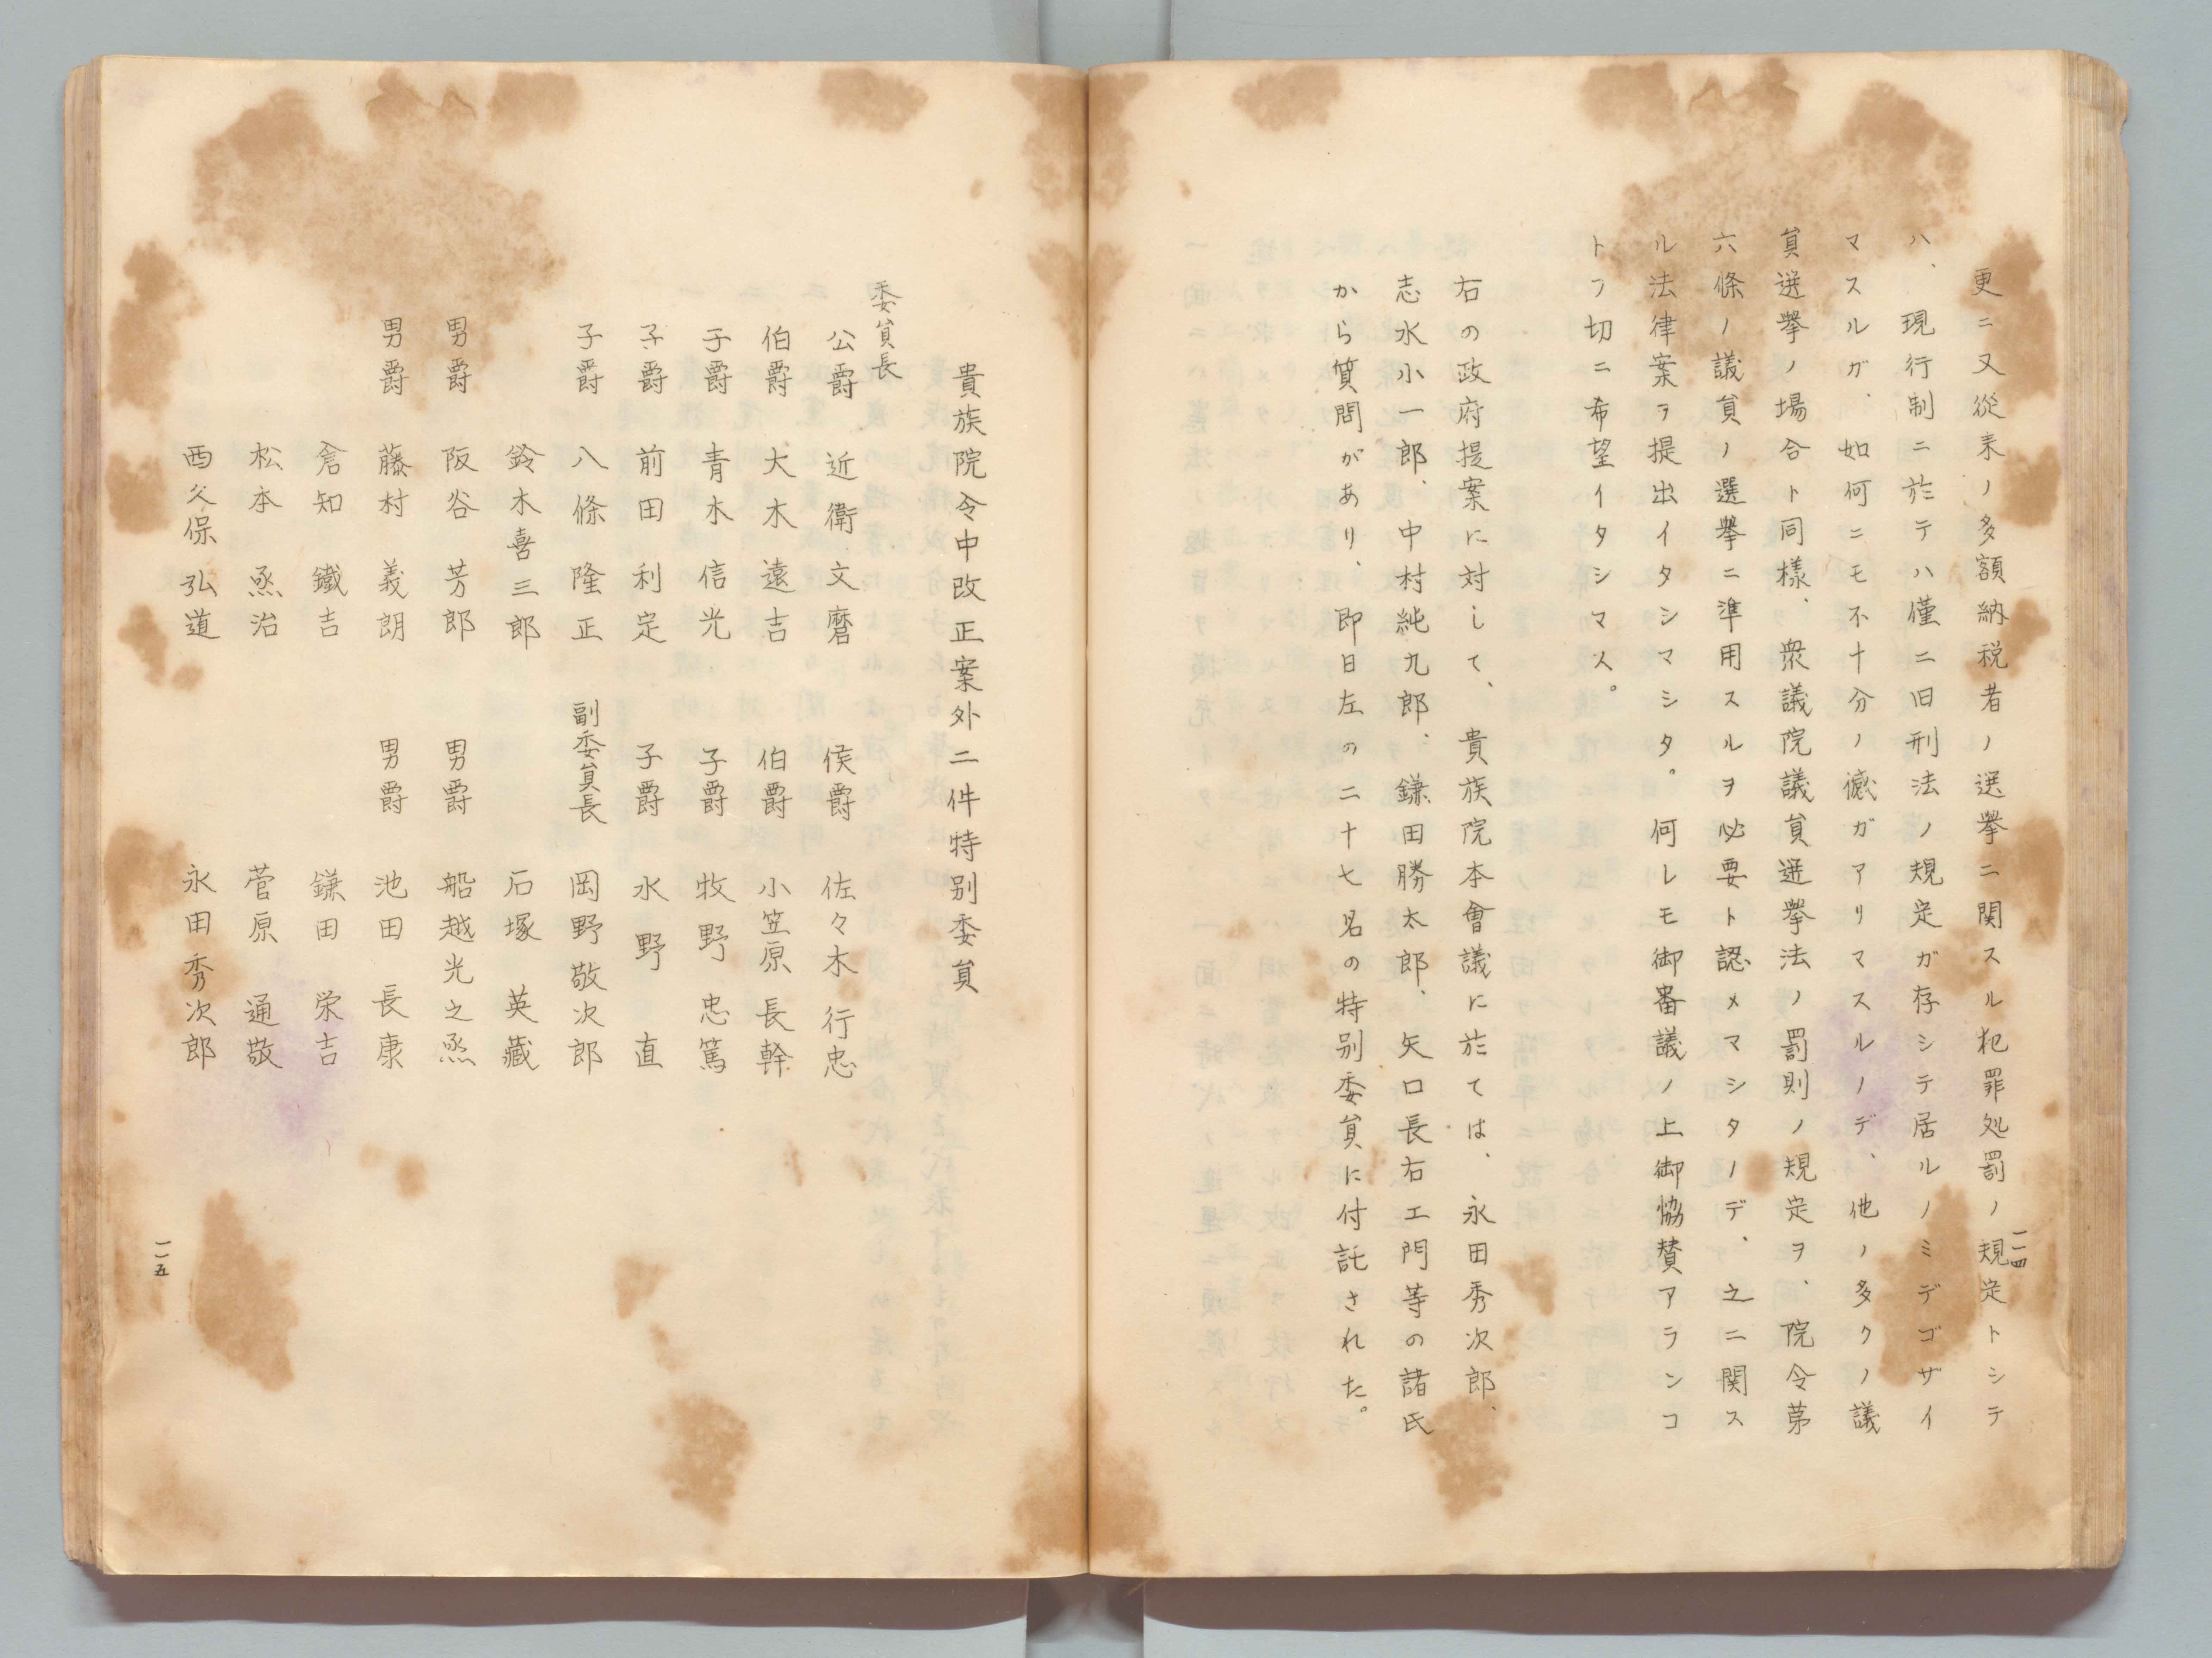 更ニ又從来ノ多額納税者ノ選擧ニ関スル犯罪処罰ノ規定トシテ
ハ、現行制ニ於テハ僅ニ旧刑法ノ規定ガ存シテ居ルノミデゴザイ
マスルガ、如何ニモ不十分ノ憾ガアリマスルノデ、他ノ多クノ議
員選擧ノ場合ト同様、衆議院議員選擧法ノ罰則ノ規定ヲ、院令第
六條ノ議員ノ選擧ニ準用スルヲ必要ト認メマシタノデ、之ニ関ス
ル法律案ヲ提出イタシマシタ。何レモ御審議ノ上御協賛アランコ
トヲ切ニ希望イタシマス。
右の政府提案に対して、貴族院本會議に於ては、永田秀次郎、
志水小一郎、中村純九郎、鎌田勝太郎、矢口長右エ門等の諸氏
から質問があり、即日左の二十七名の特別委員に付託された。
一一四
貴族院令中改正案外二件特別委員
委員長
公爵 近衛文麿 侯爵 佐々木行忠
伯爵 大木遠吉 伯爵 小笠原長幹
子爵 青木信光 子爵 牧野忠篤
子爵 前田利定 子爵 水野直
子爵 八條隆正 副委員長 岡野敬次郎
鈴木喜三郎 石塚英藏
男爵 阪谷芳郎 男爵 船越光之烝
男爵 藤村義朗 男爵 池田長康
倉知鐵吉 鎌田栄吉
松本烝治 菅原通敬
西久保弘道 永田秀次郎
一一五